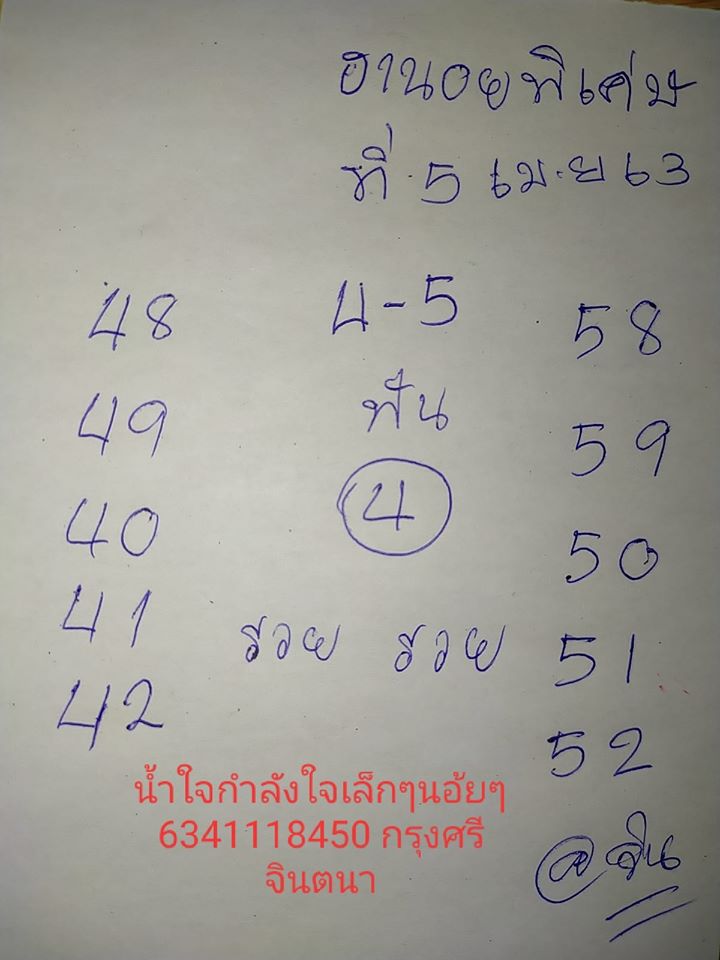 ฮานอยพิเศษ
ที่ 5 เม.ย 63
48 4-5 58
49 ฟัน 59
40 4 50
41 รวย รวย 51
42 52
น้ำใจกำลังใจเล็กๆนอ้ยๆ
6341118450 กรุงศรี
จินตนา
@จิน